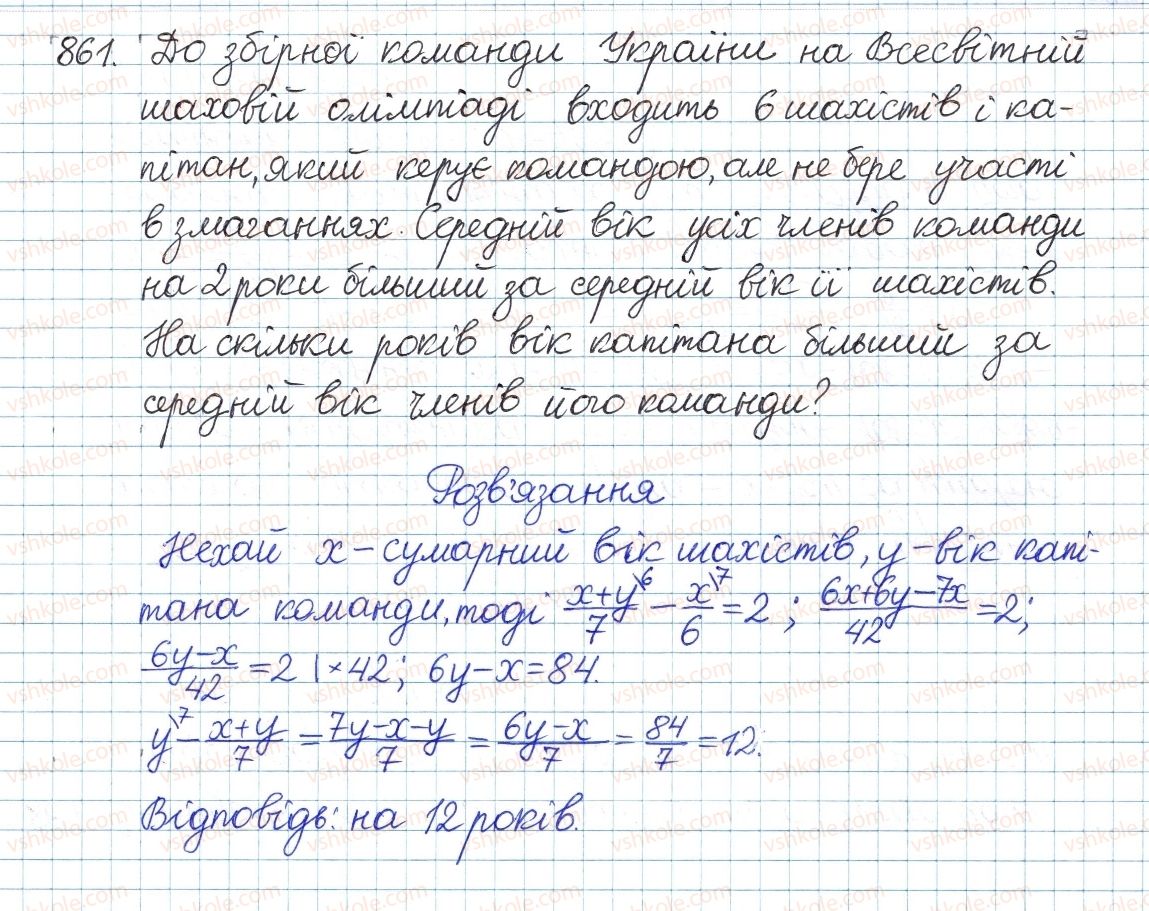 861. До збірної команди України на Всесвітній
шаховій олімпіаді входить 6 шахістів і ка-
пітан, який керує командою, але не бере участі
в змаганнях. Середній вік усіх членів команди
на 2 роки більший за середній вік її шахістів.
На скільки років вік капітана більший за
середній вік членів його команди?
Розв'язання
Нехай x – сумарний вік шахістів, y – вік капі-
тана команди, тоді (x+y)/7 \6 – x/6 \7 = 2; (6x+6y–7x)/42 = 2;
(6y–x)/42 = 2 | × 42; 6y – x = 84.
y \7 – (x+y)/7 = (7y–x–y)/7 = (6y–x)/7 = 84/7 = 12.
Відповідь: на 12 років.